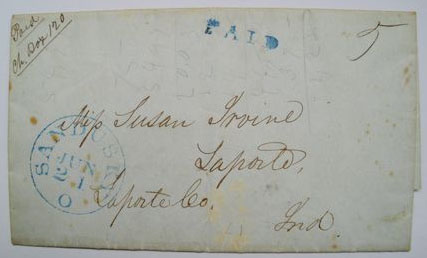 Paid
Ch. Box 120
PAID
5
Miss Susan Irvine
Laporte,
Laporte Co.
Ind
SANDUSKY
JUN
21
O